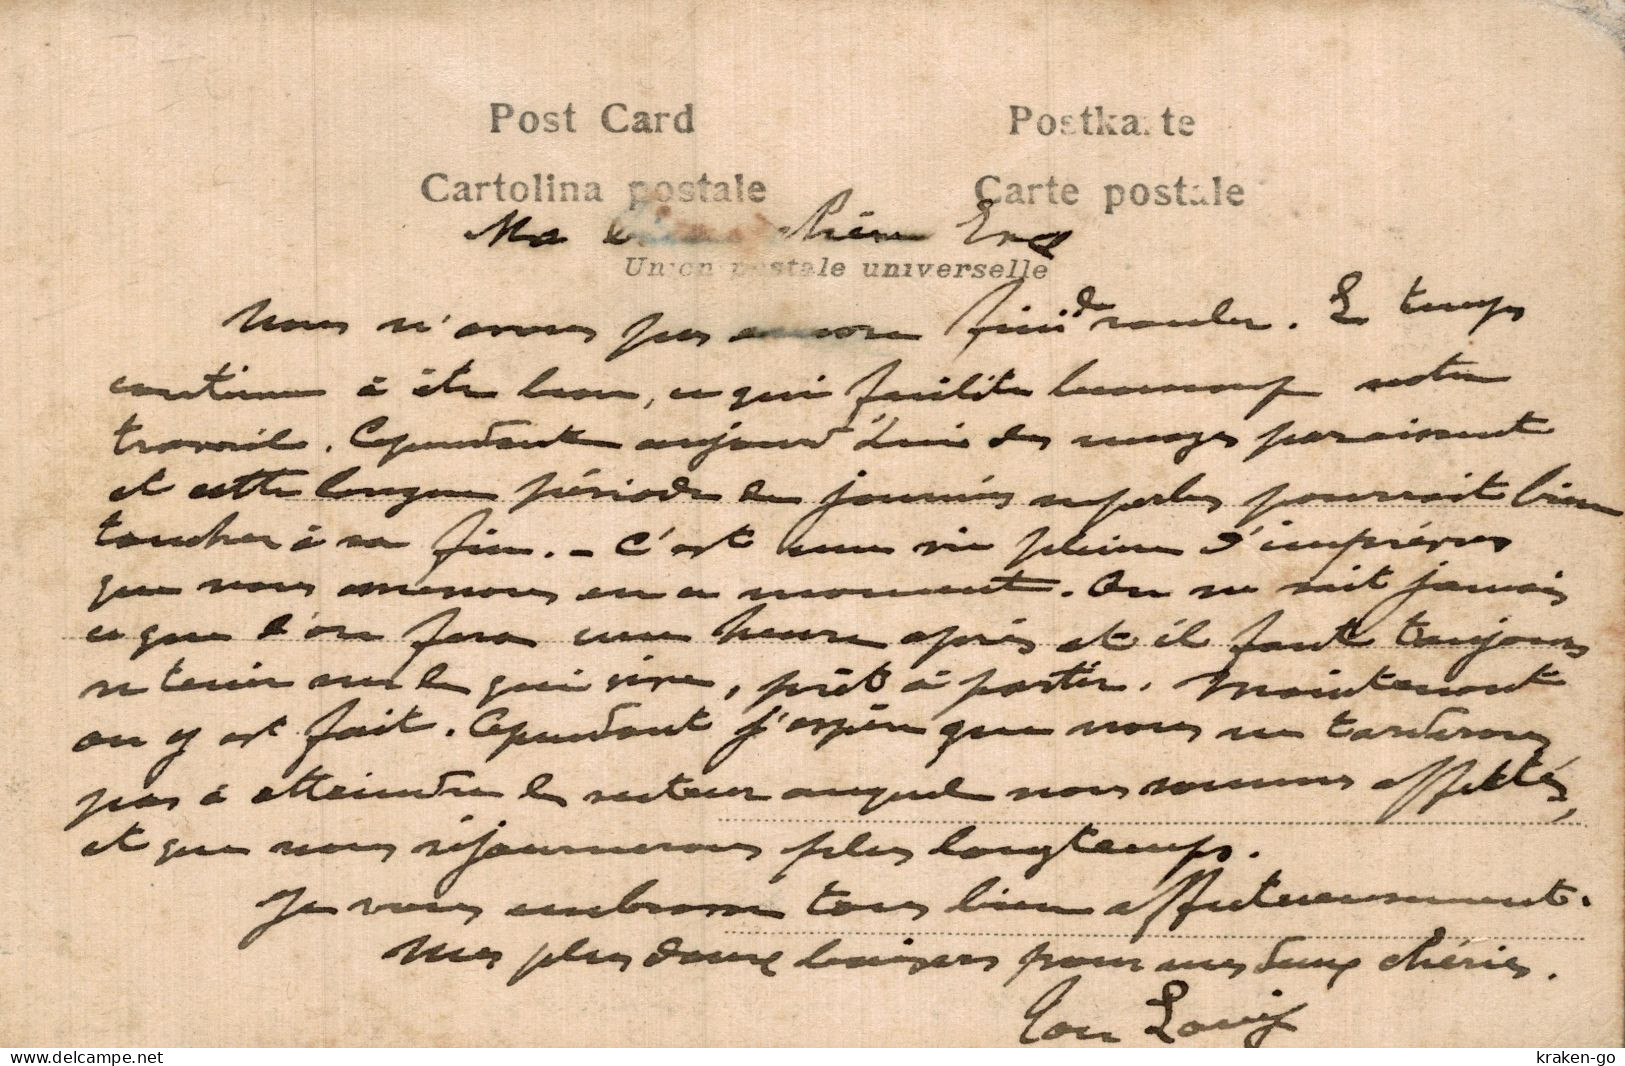 Post Card Postkarte
Cartolina postale Carte postale
Ma chère
Union postale universelle
Nous n'avons pas encore fini de rouler. Le temps
continue à être beau, ce qui facilite beaucoup notre
travail. Cependant aujourd'hui des nuages paraissent
et cette longue période de journées superbes pourrait bien
toucher à sa fin. - C'est une vie pleine d'imprévus
que nous menons en ce moment. On ne sait jamais
ce que l'on fera une heure après et il faut toujours
se tenir sur le qui vive, prêt à partir. Maintenant
on y est fait. Cependant j'espère que nous ne tarderons
pas à atteindre le secteur auquel nous sommes affectés,
et que nous séjournerons plus longtemps.
Je vous embrasse tous bien affectueusement.
Mes plus doux baisers pour mes deux chéries.
Ton Louis
© delcampe.net
kraken-go